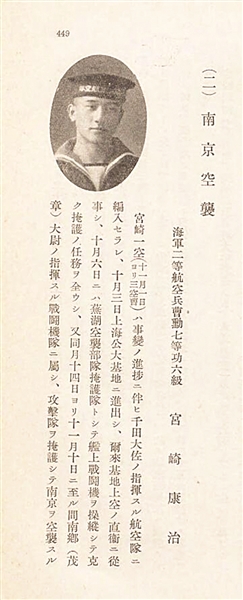 449
(二) 南京空襲
海軍二等航空兵曹勳七等功六級 宮崎康治
宮崎一空(十一月一日ヨリ三空曹)ハ事變ノ進捗ニ伴ヒ千田大佐ノ指揮スル航空隊ニ
編入セラレ、十月三日上海公大基地ニ進出シ、爾來基地上空ノ直衞ニ從
事シ、十月六日ニハ蕪湖空襲部隊掩護隊トシテ艦上戰鬪機ヲ操縱シテ克
ク掩護ノ任務ヲ全ウシ、又同月十四日ヨリ十一月十日ニ至ル間南鄕(茂
章)大尉ノ指揮スル戰鬪機隊ニ屬シ、攻擊隊ヲ掩護シテ南京ヲ空襲スル